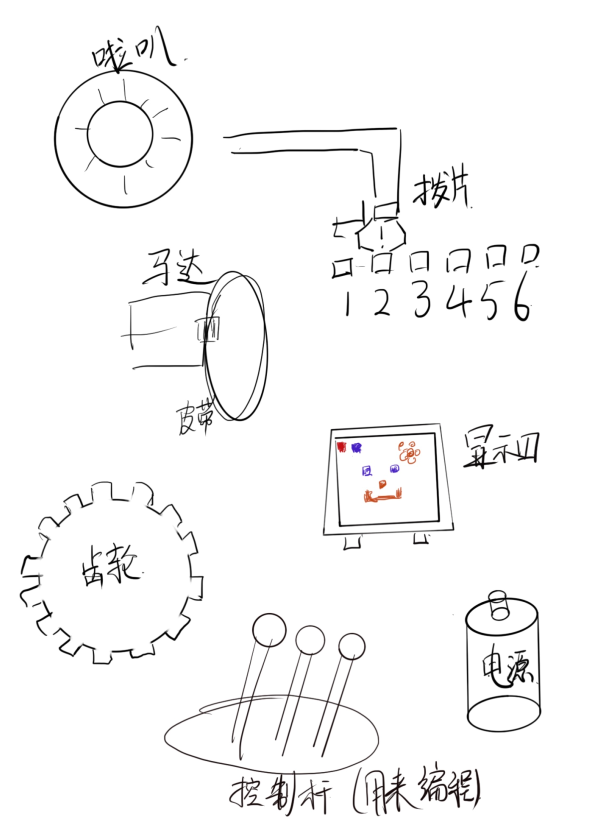 喇叭
拨片
1 2 3 4 5 6
马达
皮带
显示四
齿轮
电源
控制杆(用来编程)